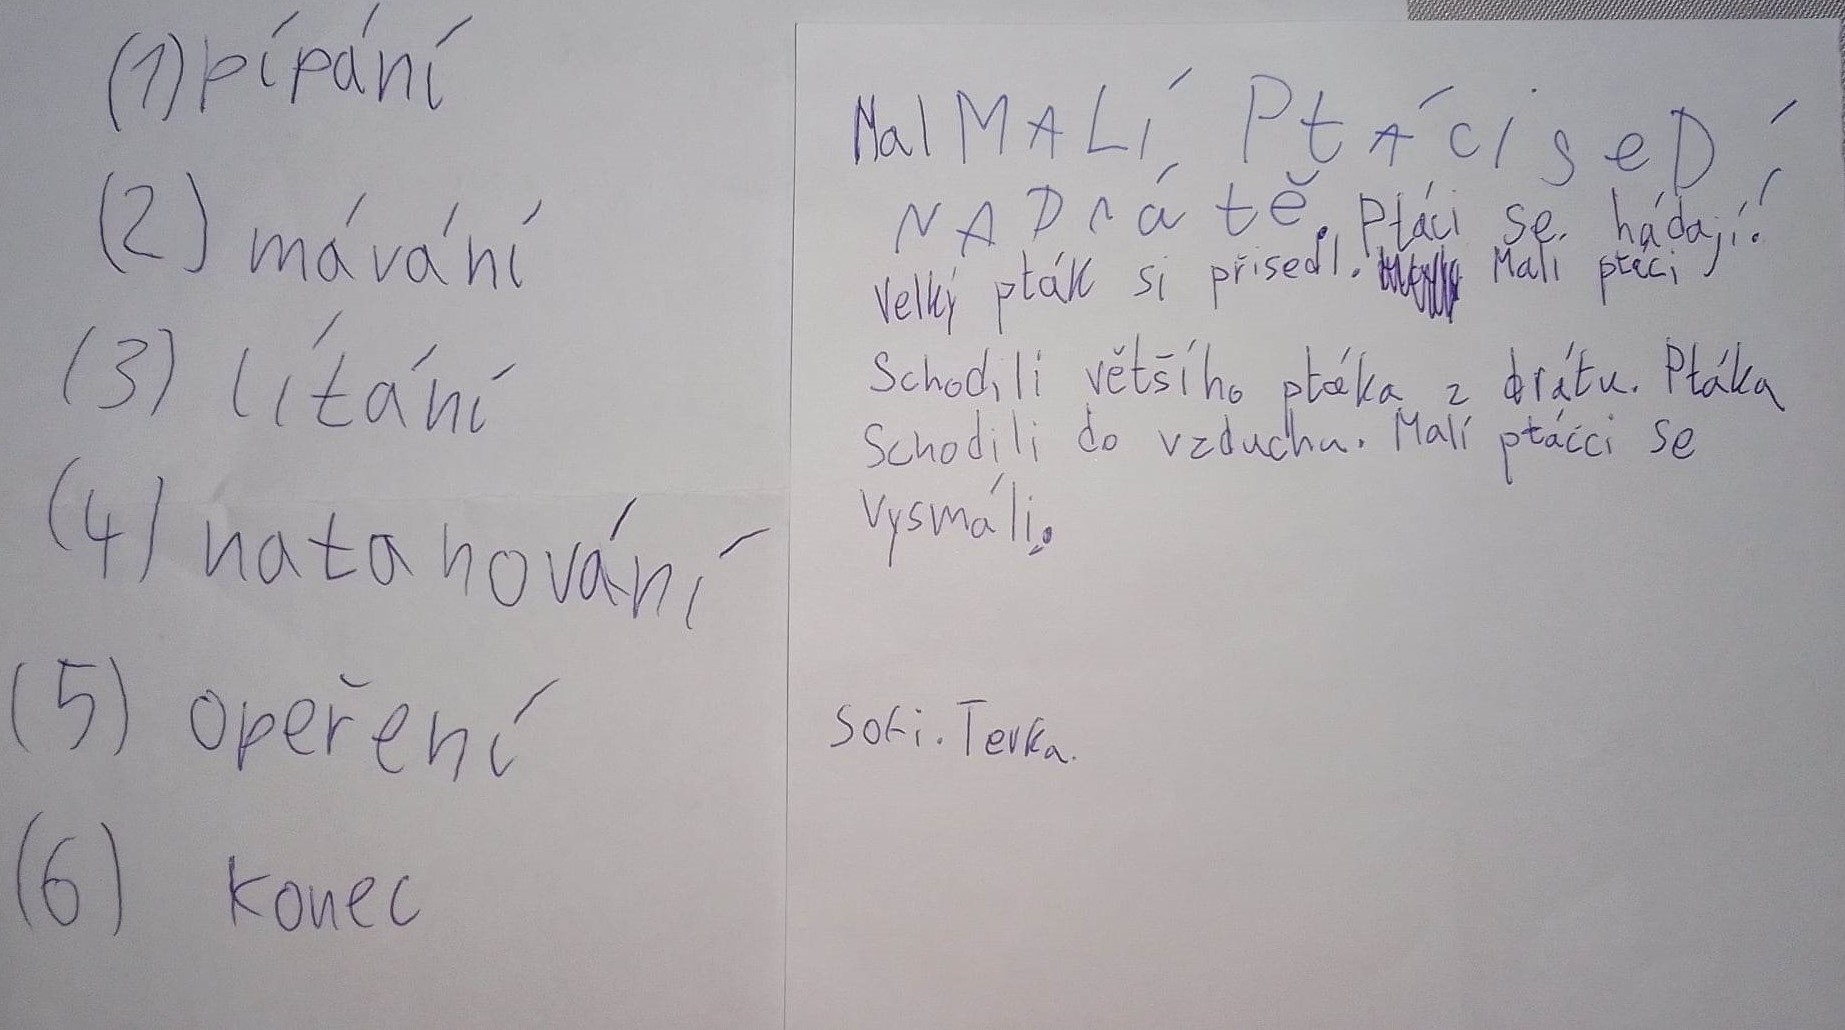 (1) pípání
(2) mávání
(3) lítání
(4) natahování
(5) opeření
(6) konec
Mal MALÍ PtÁCI seDÍ
NADrátě. Ptáci se hádají!
Velký pták si přisedl. Malí ptáci
Schodili většího ptáka z drátu. Ptáka
Schodili do vzduchu. Malí ptácci se
vysmáli.
Sofi. Terka.